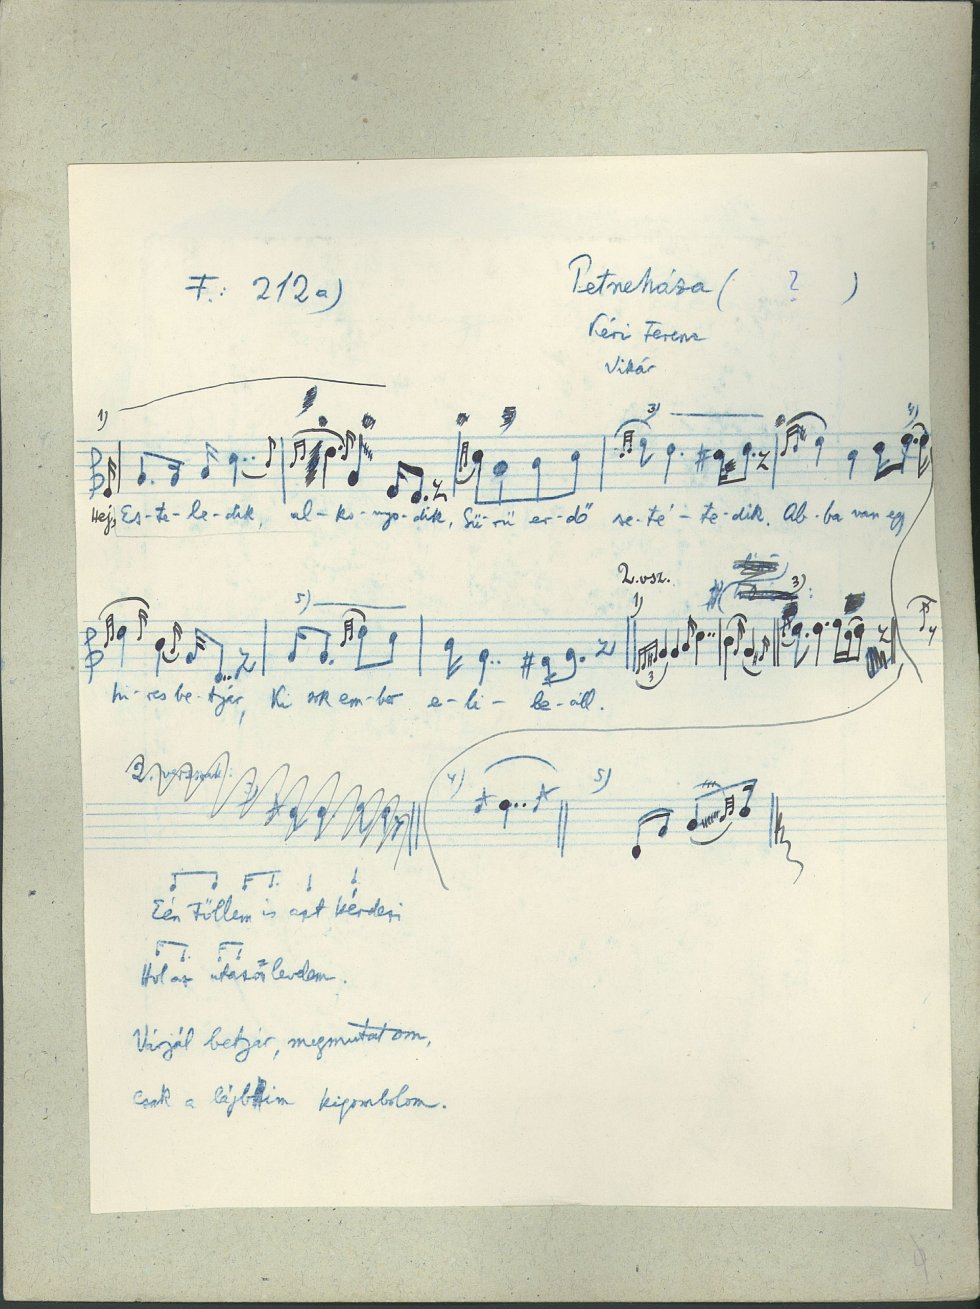 F.: 212a)
Petneháza ( ? )
Kéri Ferenc
Vikár
1) 3) 4)
Hej, Es-te-le-dik, al-ko-nyo-dik, Sü-rü er-dő se-té-te-dik. Ab-ba van egy
2. vsz.
5) 1) 3)
hi-res be-tyár, Ki sok em-ber e-li-be-áll.
2. versszak:
4) 5)
Één Töllem is azt kérdezi
Hol az utazóslevelem.
Várjál betyár, megmutatom,
csak a lájbim kigombolom.